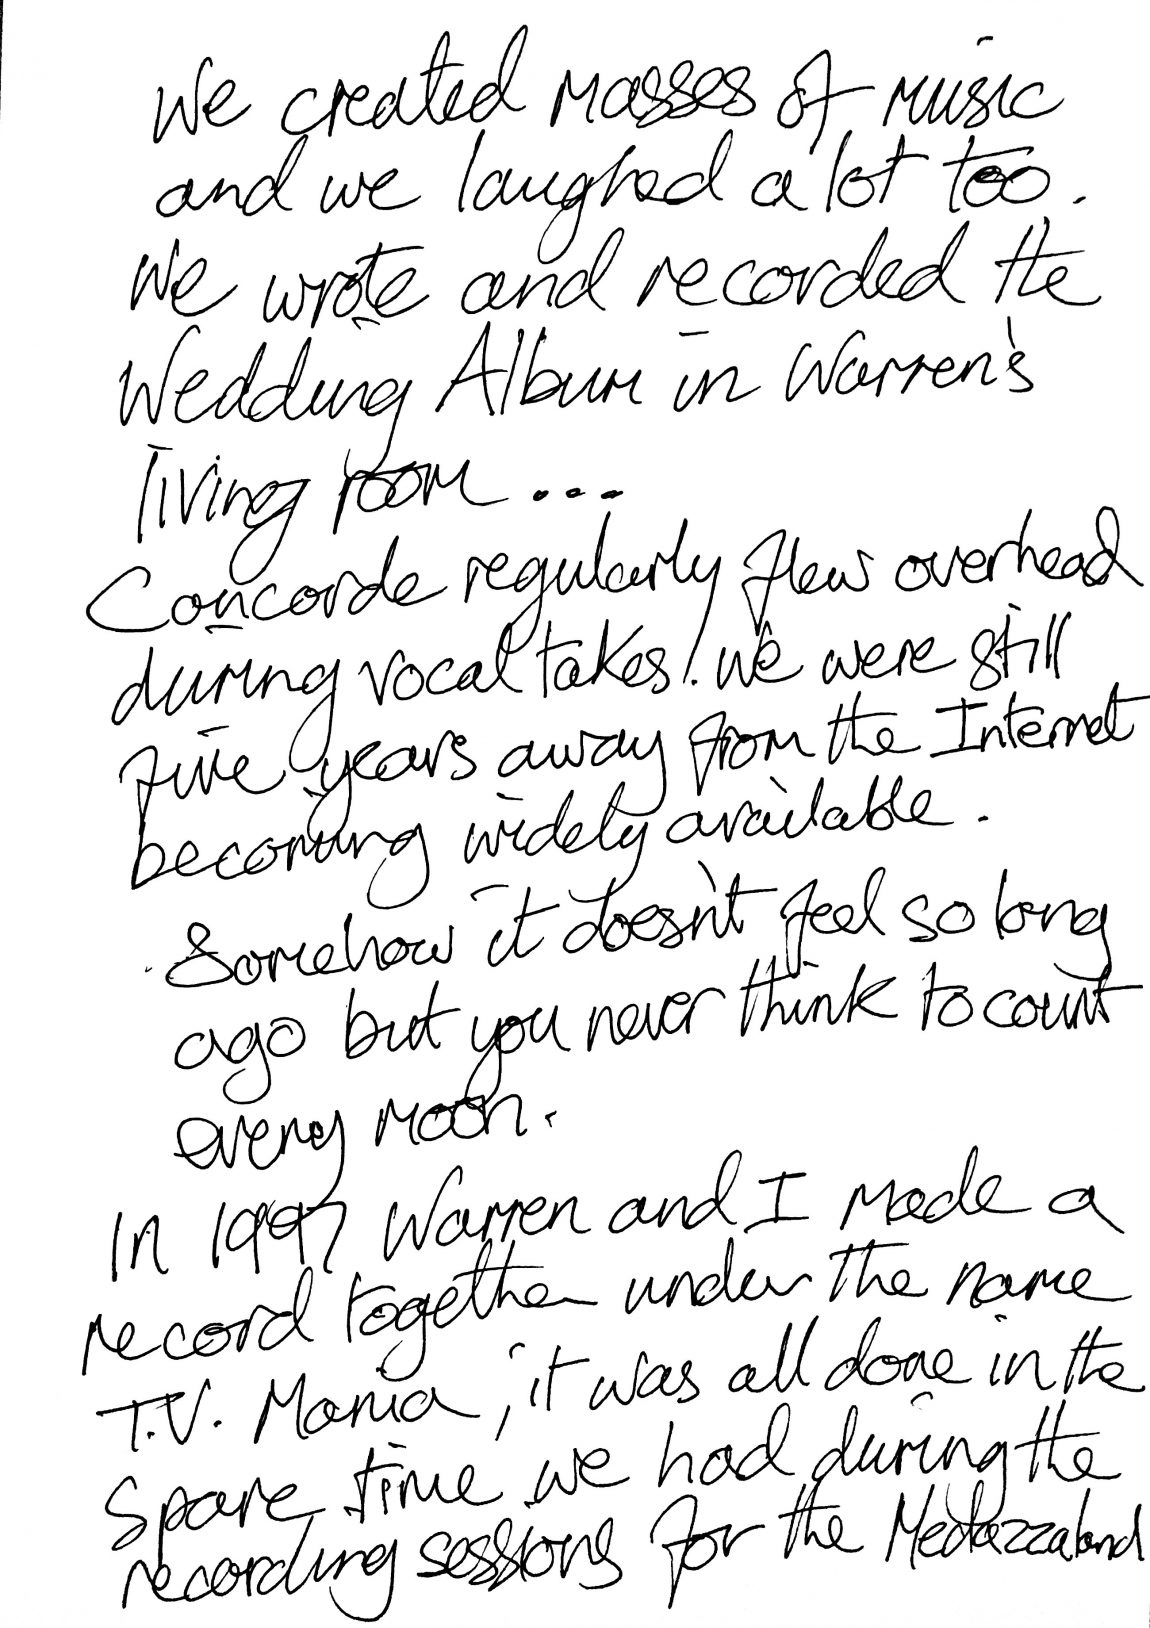 We created masses of music
and we laughed a lot too.
We wrote and recorded the
Wedding Album in Warren's
living room...
Concorde regularly flew overhead
during vocal takes! we were still
five years away from the Internet
becoming widely available.
Somehow it doesn't feel so long
ago but you never think to count
every moon.
In 1997 Warren and I made a
record together under the name
T.V. Mania, it was all done in the
spare time we had during the
recording sessions for the Medazzaland